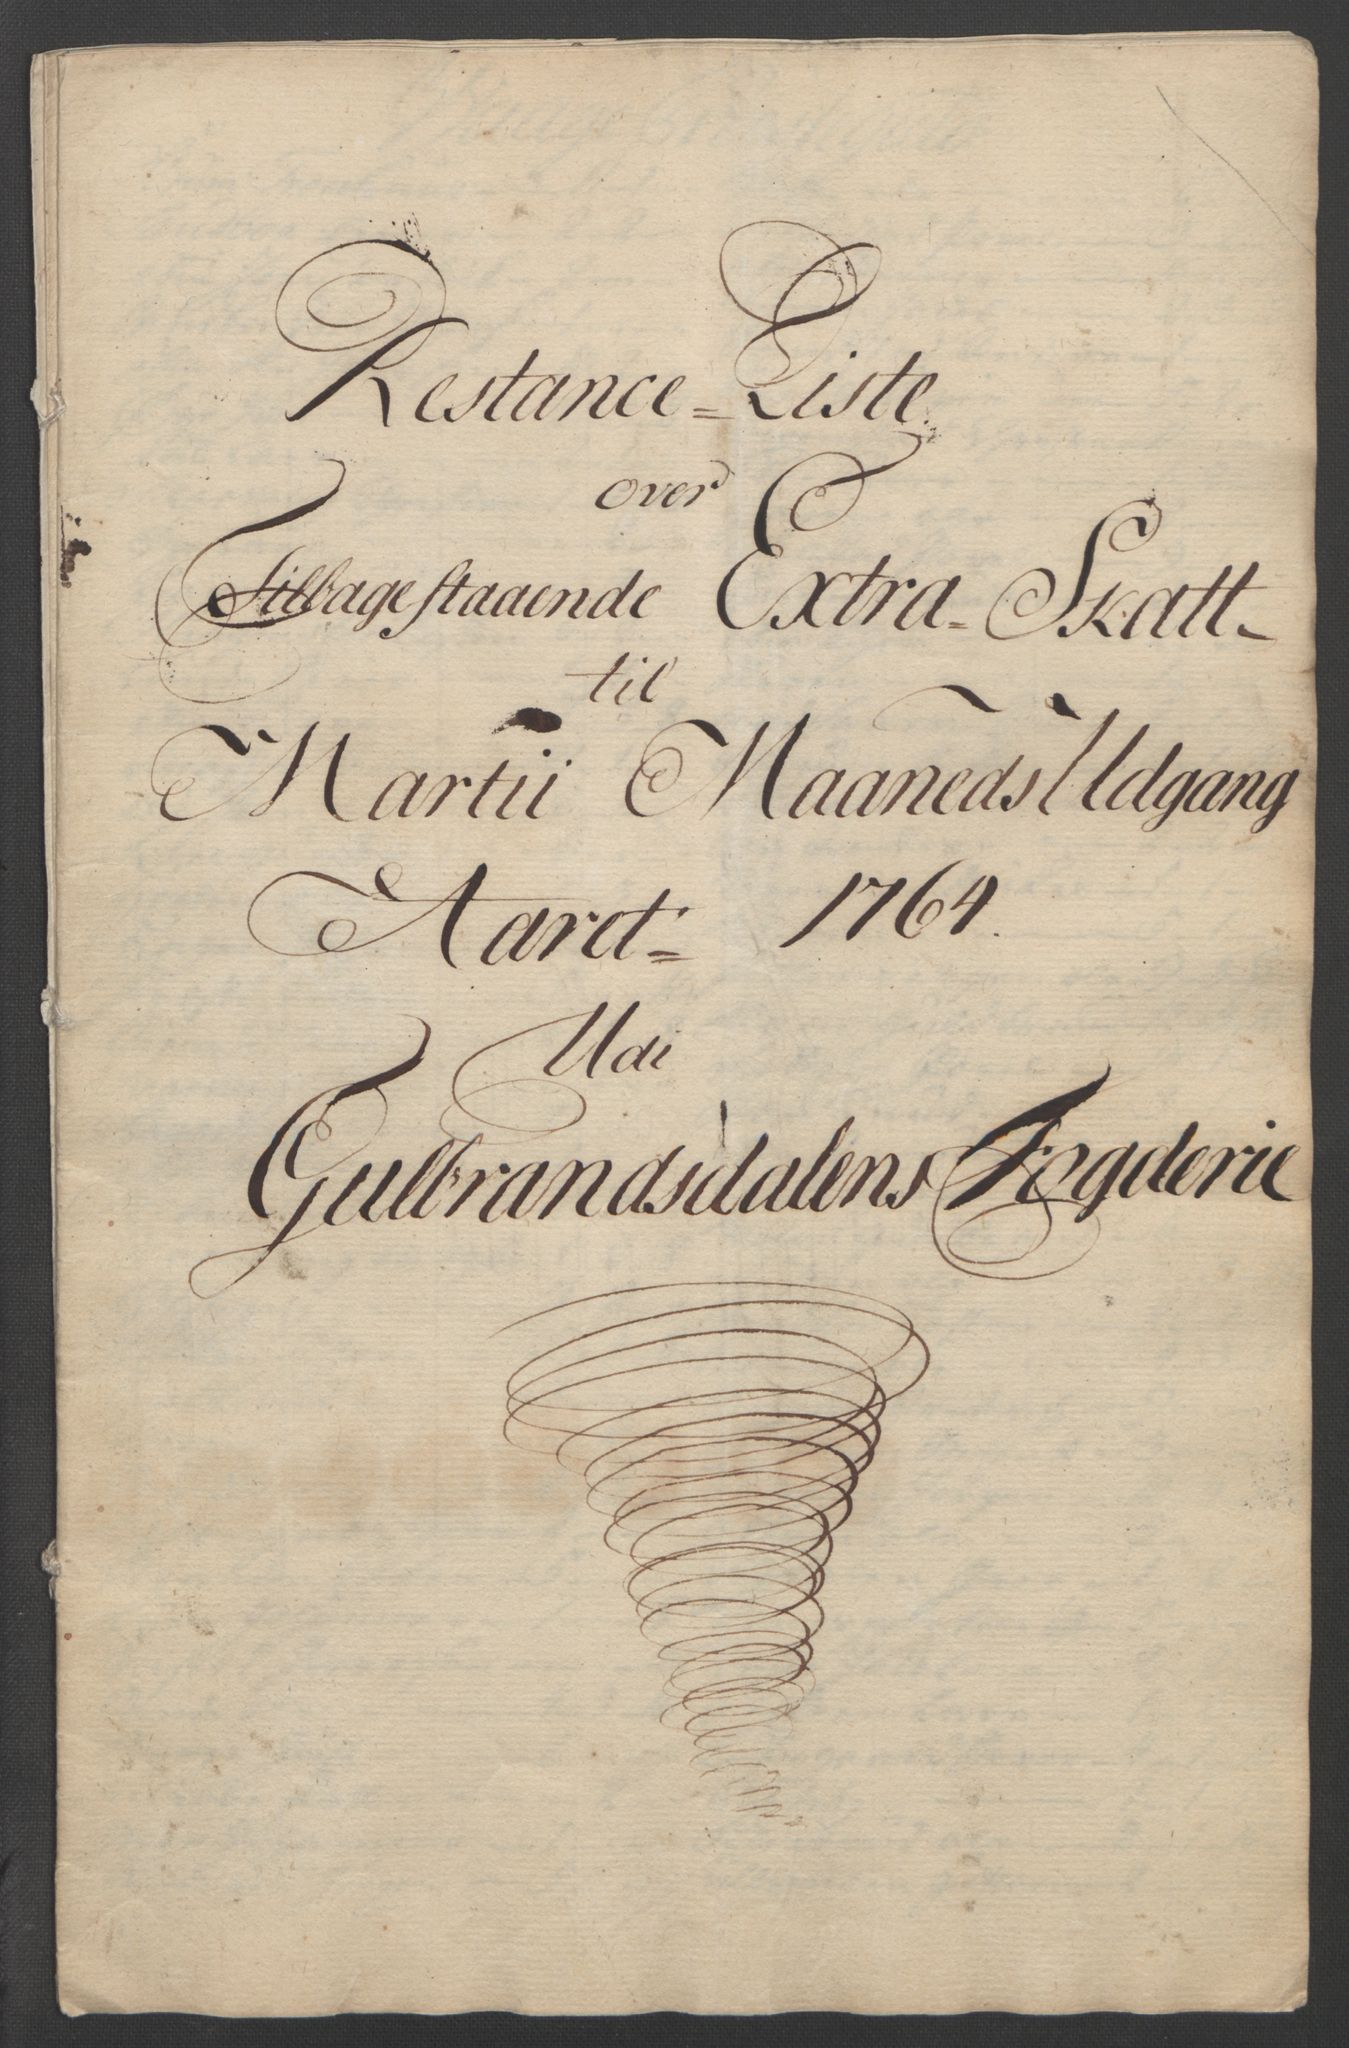 Restance=Liste
over
Tilbagestaaende Extra-Skatt-
til
Martii Maaneds Udgang
Aaret= 1764.
Udi
Gulbrandsdalens Fogderie